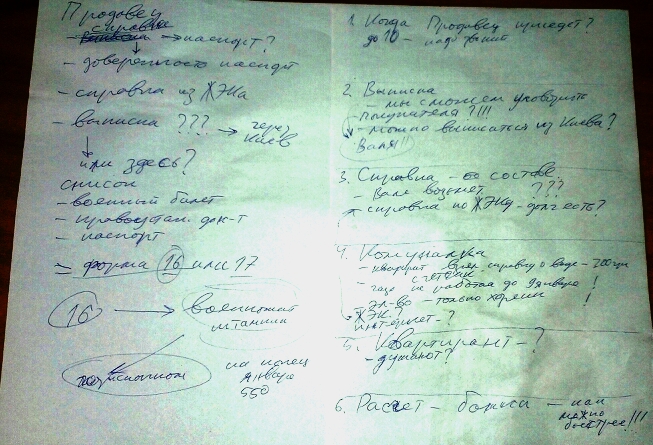 Продовец
справка
→ паспорт?
- доверенность паспорт
- справка из ЖЭКа
- выписка ??? → через Киев
или здесь?
список
- военный билет
- правоустан. док-т
- паспорт
= форма 16 или 17
16 → военкомат
на конец
января
550
1. Когда Продавец приедет?
до 10 - надо
2. Выписка
- мы сможем уговорить
покупателя?!!!
- можно выписаться из Киева?
Валя!!
3. Справка - о составе.
- Валя возьмет ???
справка по ЖЭКу - долг есть?
4. Комуналка
- квартирант взял справку о воде - 200 грн
с счетчик
- газ не работал до января!
эл-во - только !
ЖЭК-?
интернет-?
5. Квартирант-?
- думают?
6. Расчет - - как
можно
быстрее!!!